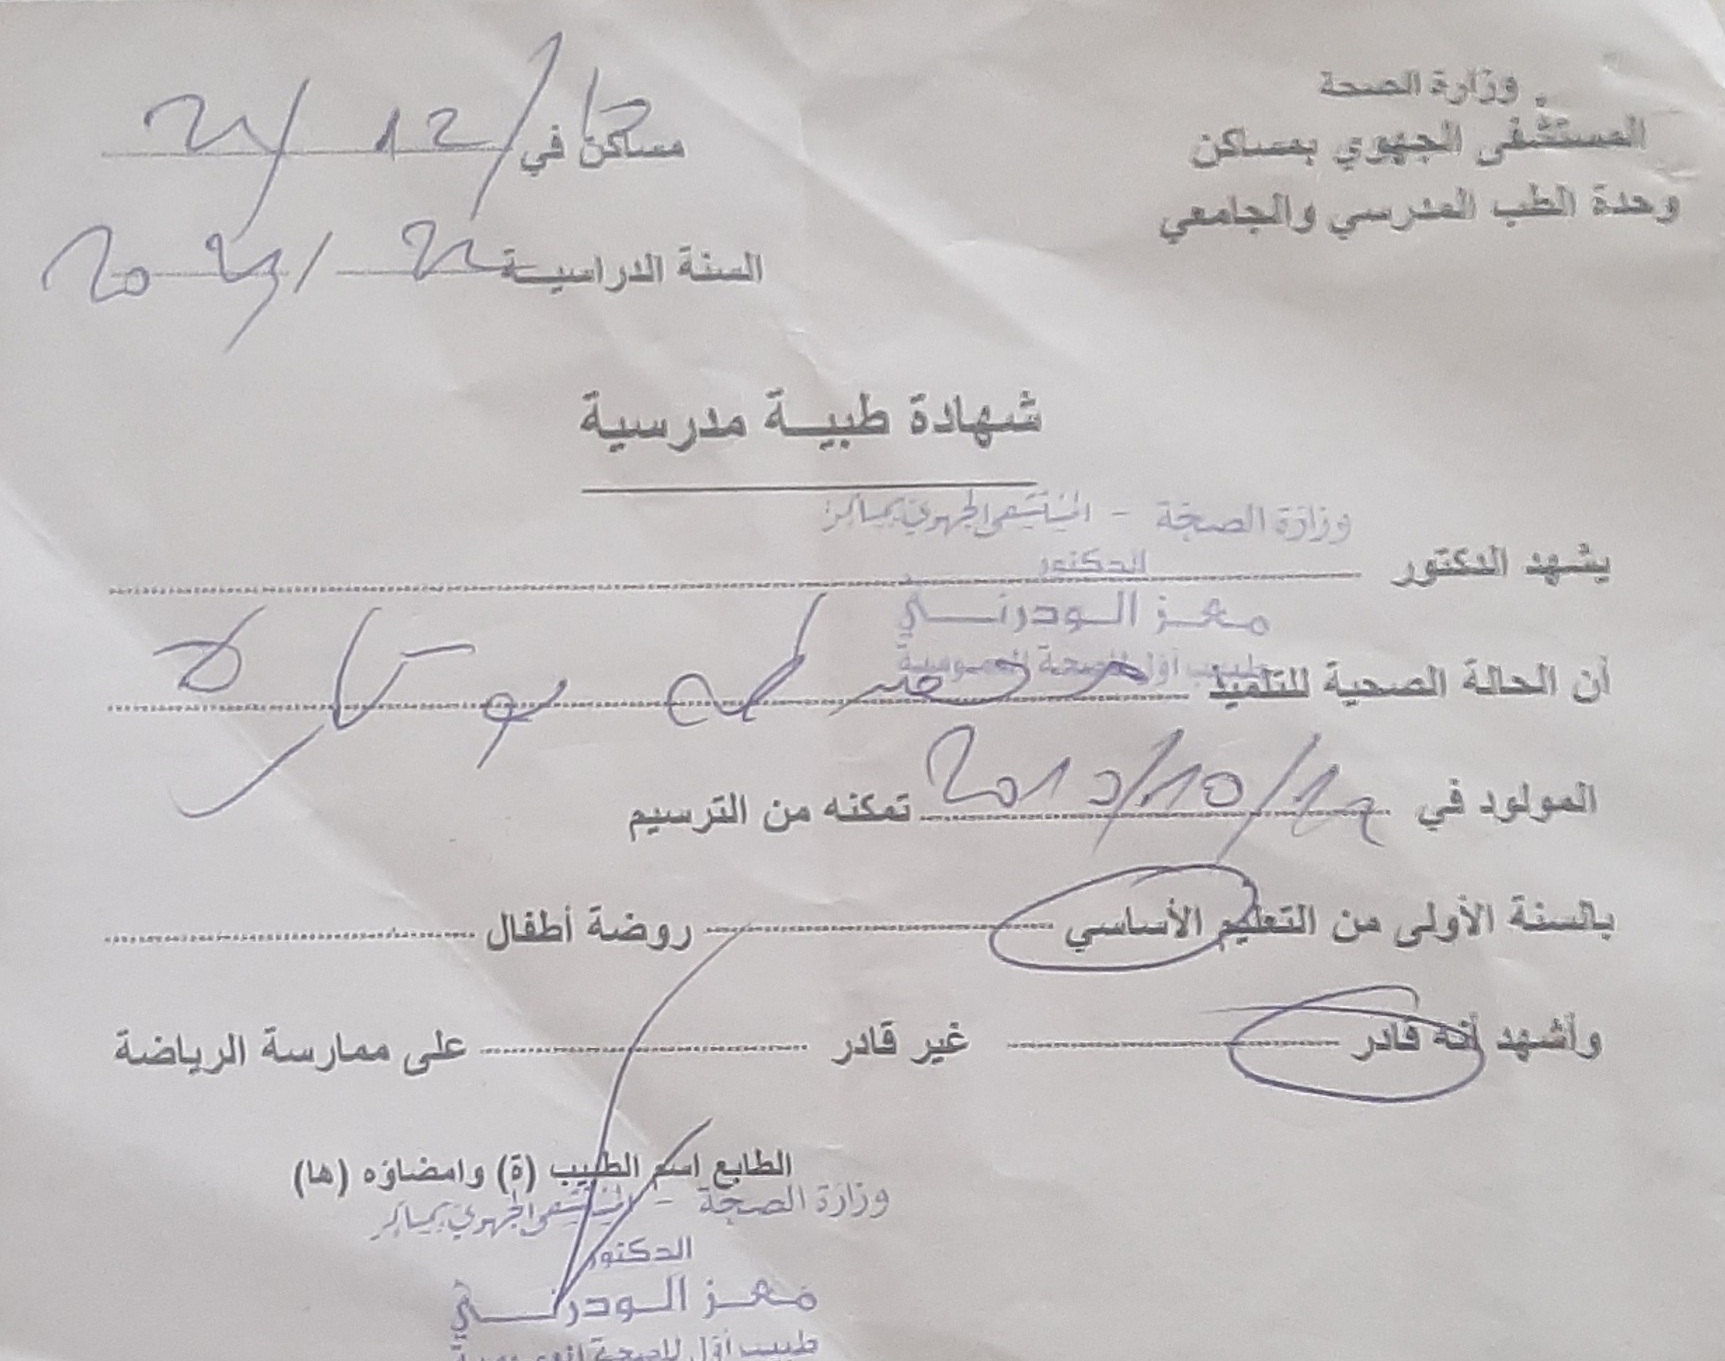 وزارة الصحة
المستشفى الجهوي بمساكن
وحدة الطب المدرسي والجامعي
مساكن في 12/
السنة الدراسية 22 / 2023
شهادة طبية مدرسية
وزارة الصحة - المستشفى الجهوي بمساكن
يشهد الدكتور
الدكتور
معز الودرني
طبيب أول للصحة العمومية
أن الحالة الصحية للتلميذ
المولود في تمكنه من الترسيم
بالسنة الأولى من التعليم الأساسي روضة أطفال
وأشهد أنه قادر غير قادر على ممارسة الرياضة
الطابع اسم الطبيب (ة) وامضاؤه (ها)
وزارة الصحة - المستشفى الجهوي بمساكن
الدكتور
معز الودرني
طبيب أول للصحة العمومية